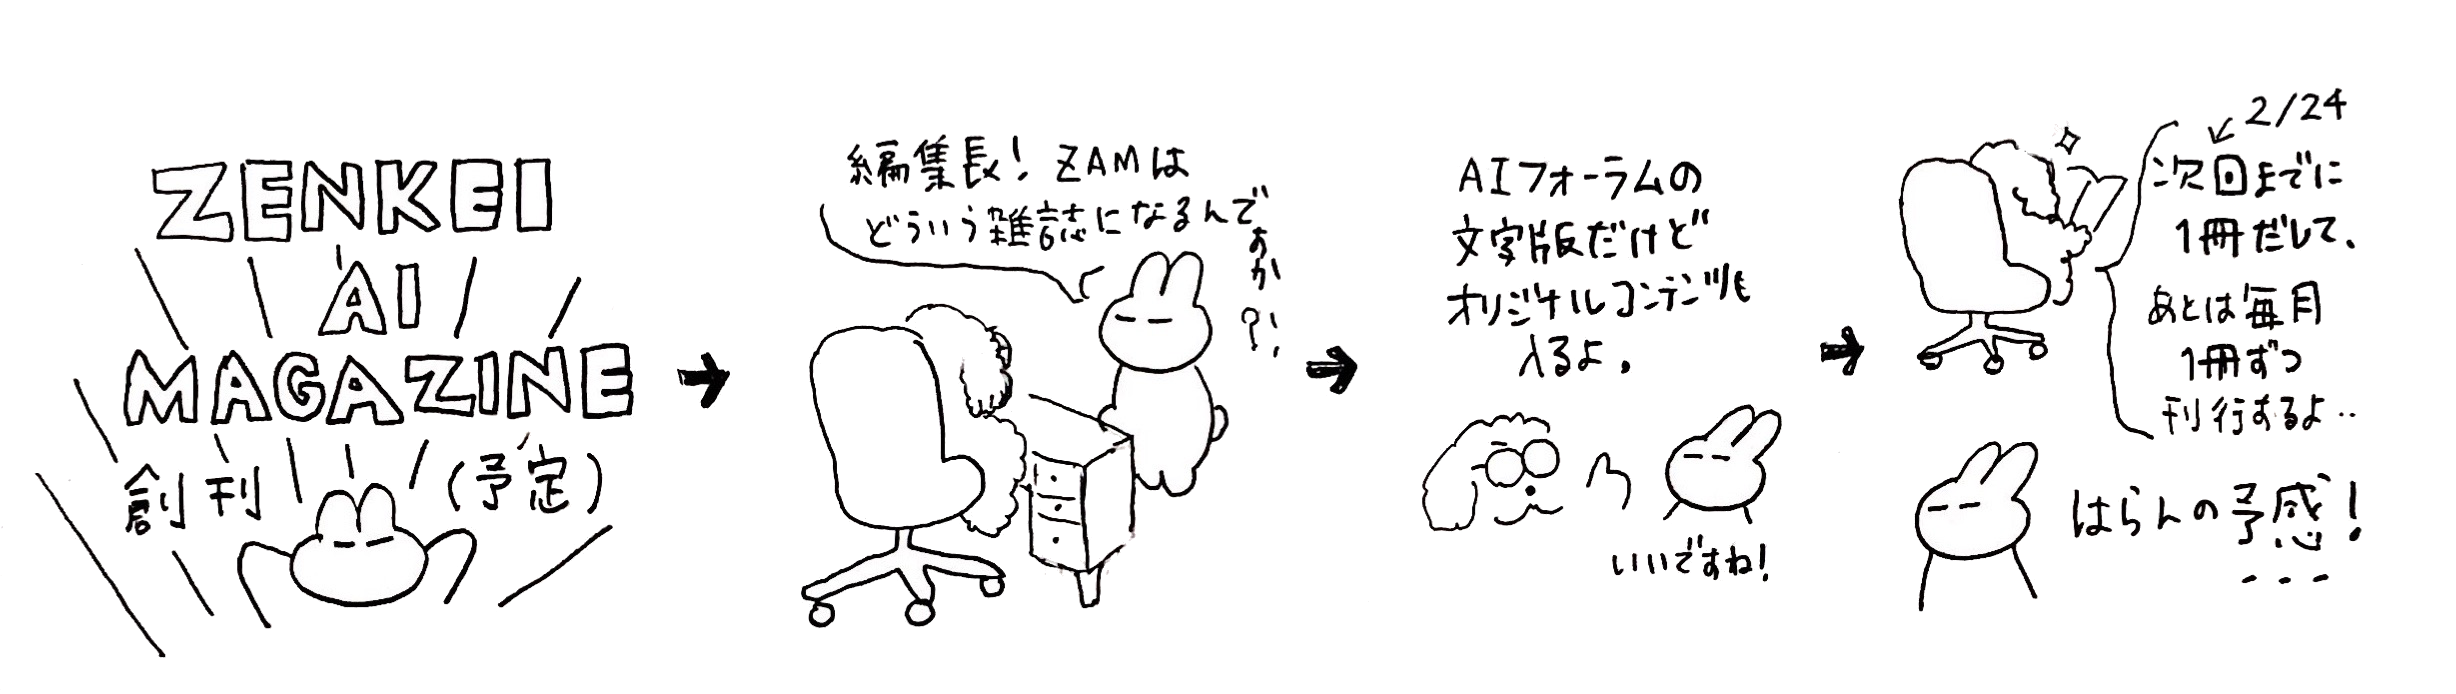 ZENKEI
AI
MAGAZINE
創刊 (予定)
編集長! ZAMは
どういう雑誌になるんですか?!
AIフォーラムの
文字版だけど
オリジナルコンテンツも
入るよ。
いいですね!
2/24
次回までに
1冊だして、
あとは毎月
1冊ずつ
刊行するよ‥
はらんの予感!